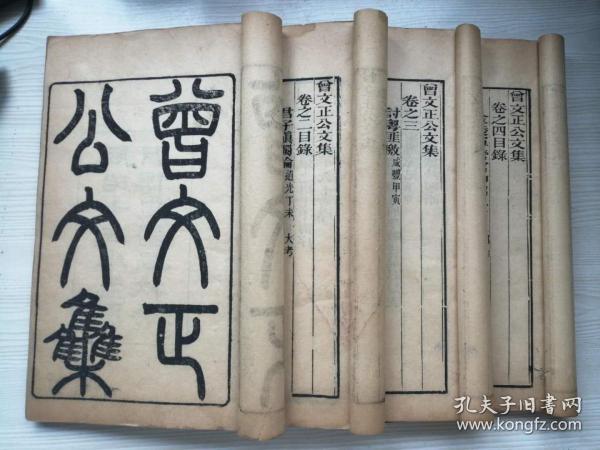 曾文正
公文集
曾文正公文集
卷之二目錄
君子慎獨論道光丁未大考
曾文正公文集
卷之三
討粵匪檄咸豐甲寅
曾文正公文集
卷之四目錄
孔夫子旧书网
www.kongfz.com